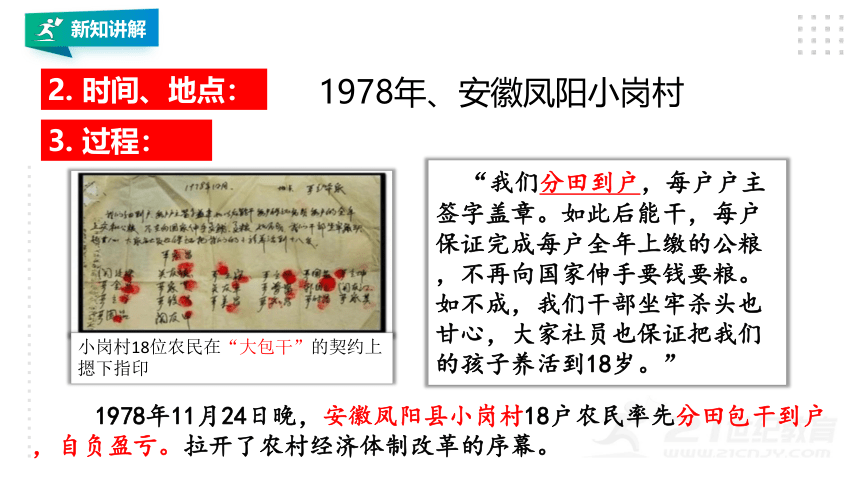 新知讲解
2. 时间、地点：
1978年、安徽凤阳小岗村
3. 过程：
1978年12月
小岗村18位农民在“大包干”的契约上
摁下指印
“我们分田到户，每户户主
签字盖章。如此后能干，每户
保证完成每户全年上缴的公粮
，不再向国家伸手要钱要粮。
如不成，我们干部坐牢杀头也
甘心，大家社员也保证把我们
的孩子养活到18岁。”
1978年11月24日晚，安徽凤阳县小岗村18户农民率先分田包干到户
，自负盈亏。拉开了农村经济体制改革的序幕。
21世纪教育
WWW.21CNJY.COM